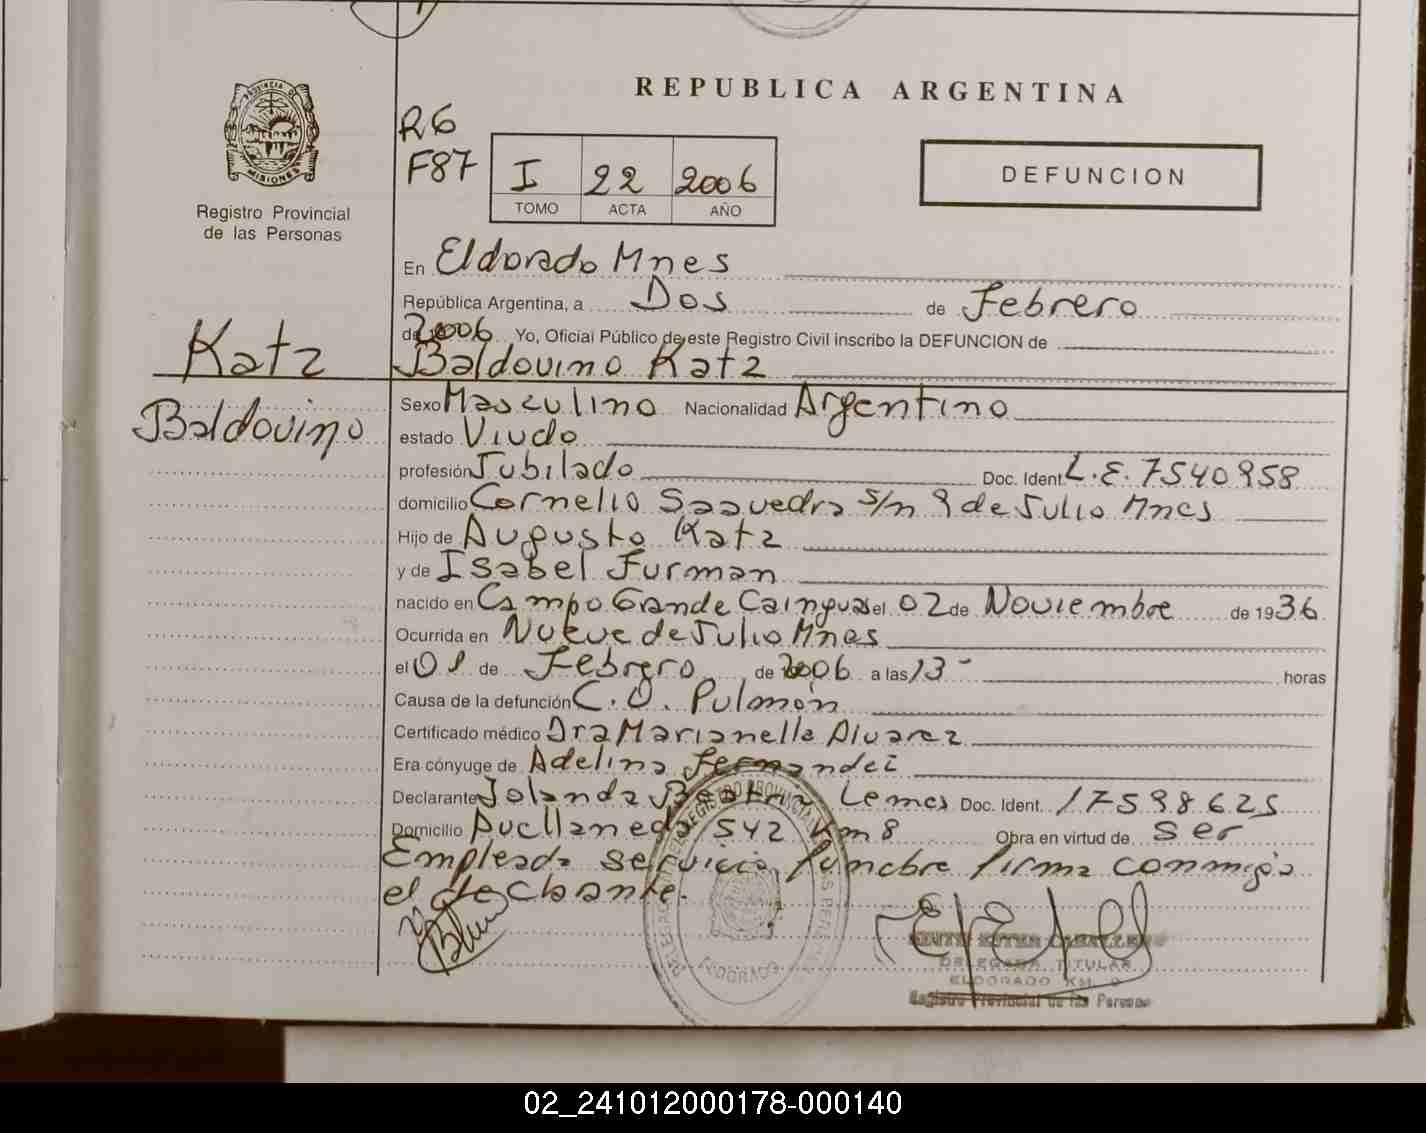 REPUBLICA ARGENTINA
PROVINCIA D
MISIONES
Registro Provincial
de las Personas
R6
F87
I 22 2006
TOMO ACTA AÑO
DEFUNCION
En Eldorado Mnes
República Argentina, a Dos de Febrero
de 2006 Yo, Oficial Público de este Registro Civil inscribo la DEFUNCION de
Katz
Baldovino
Baldovino Katz
Sexo Masculino Nacionalidad Argentino
estado Viudo
profesión Jubilado Doc. Ident. L.E. 7540958
domicilio Cornelio Saavedra s/n 9 de Julio Mnes
Hijo de Augusto Katz
y de Isabel Furman
nacido en Campo Grande Cainguas el 02 de Noviembre de 1936
Ocurrida en Nueve de Julio Mnes
el 01 de Febrero de 2006 a las 13- horas
Causa de la defunción C.O. Pulmón
Certificado médico Dra Marianella Alvarez
Era cónyuge de Adelina Fernandez
Declarante Jolanda Beatriz Lemes Doc. Ident. 17598625
Domicilio Avellaneda 542 Km 8 Obra en virtud de ser
Empleada servicio funebre firma conmigo
el declarante.
CABALLERO
DELEGADA TITULAR
ELDORADO KM. 9
Registro Provincial de las Personas
ELDORADO
02_241012000178-000140